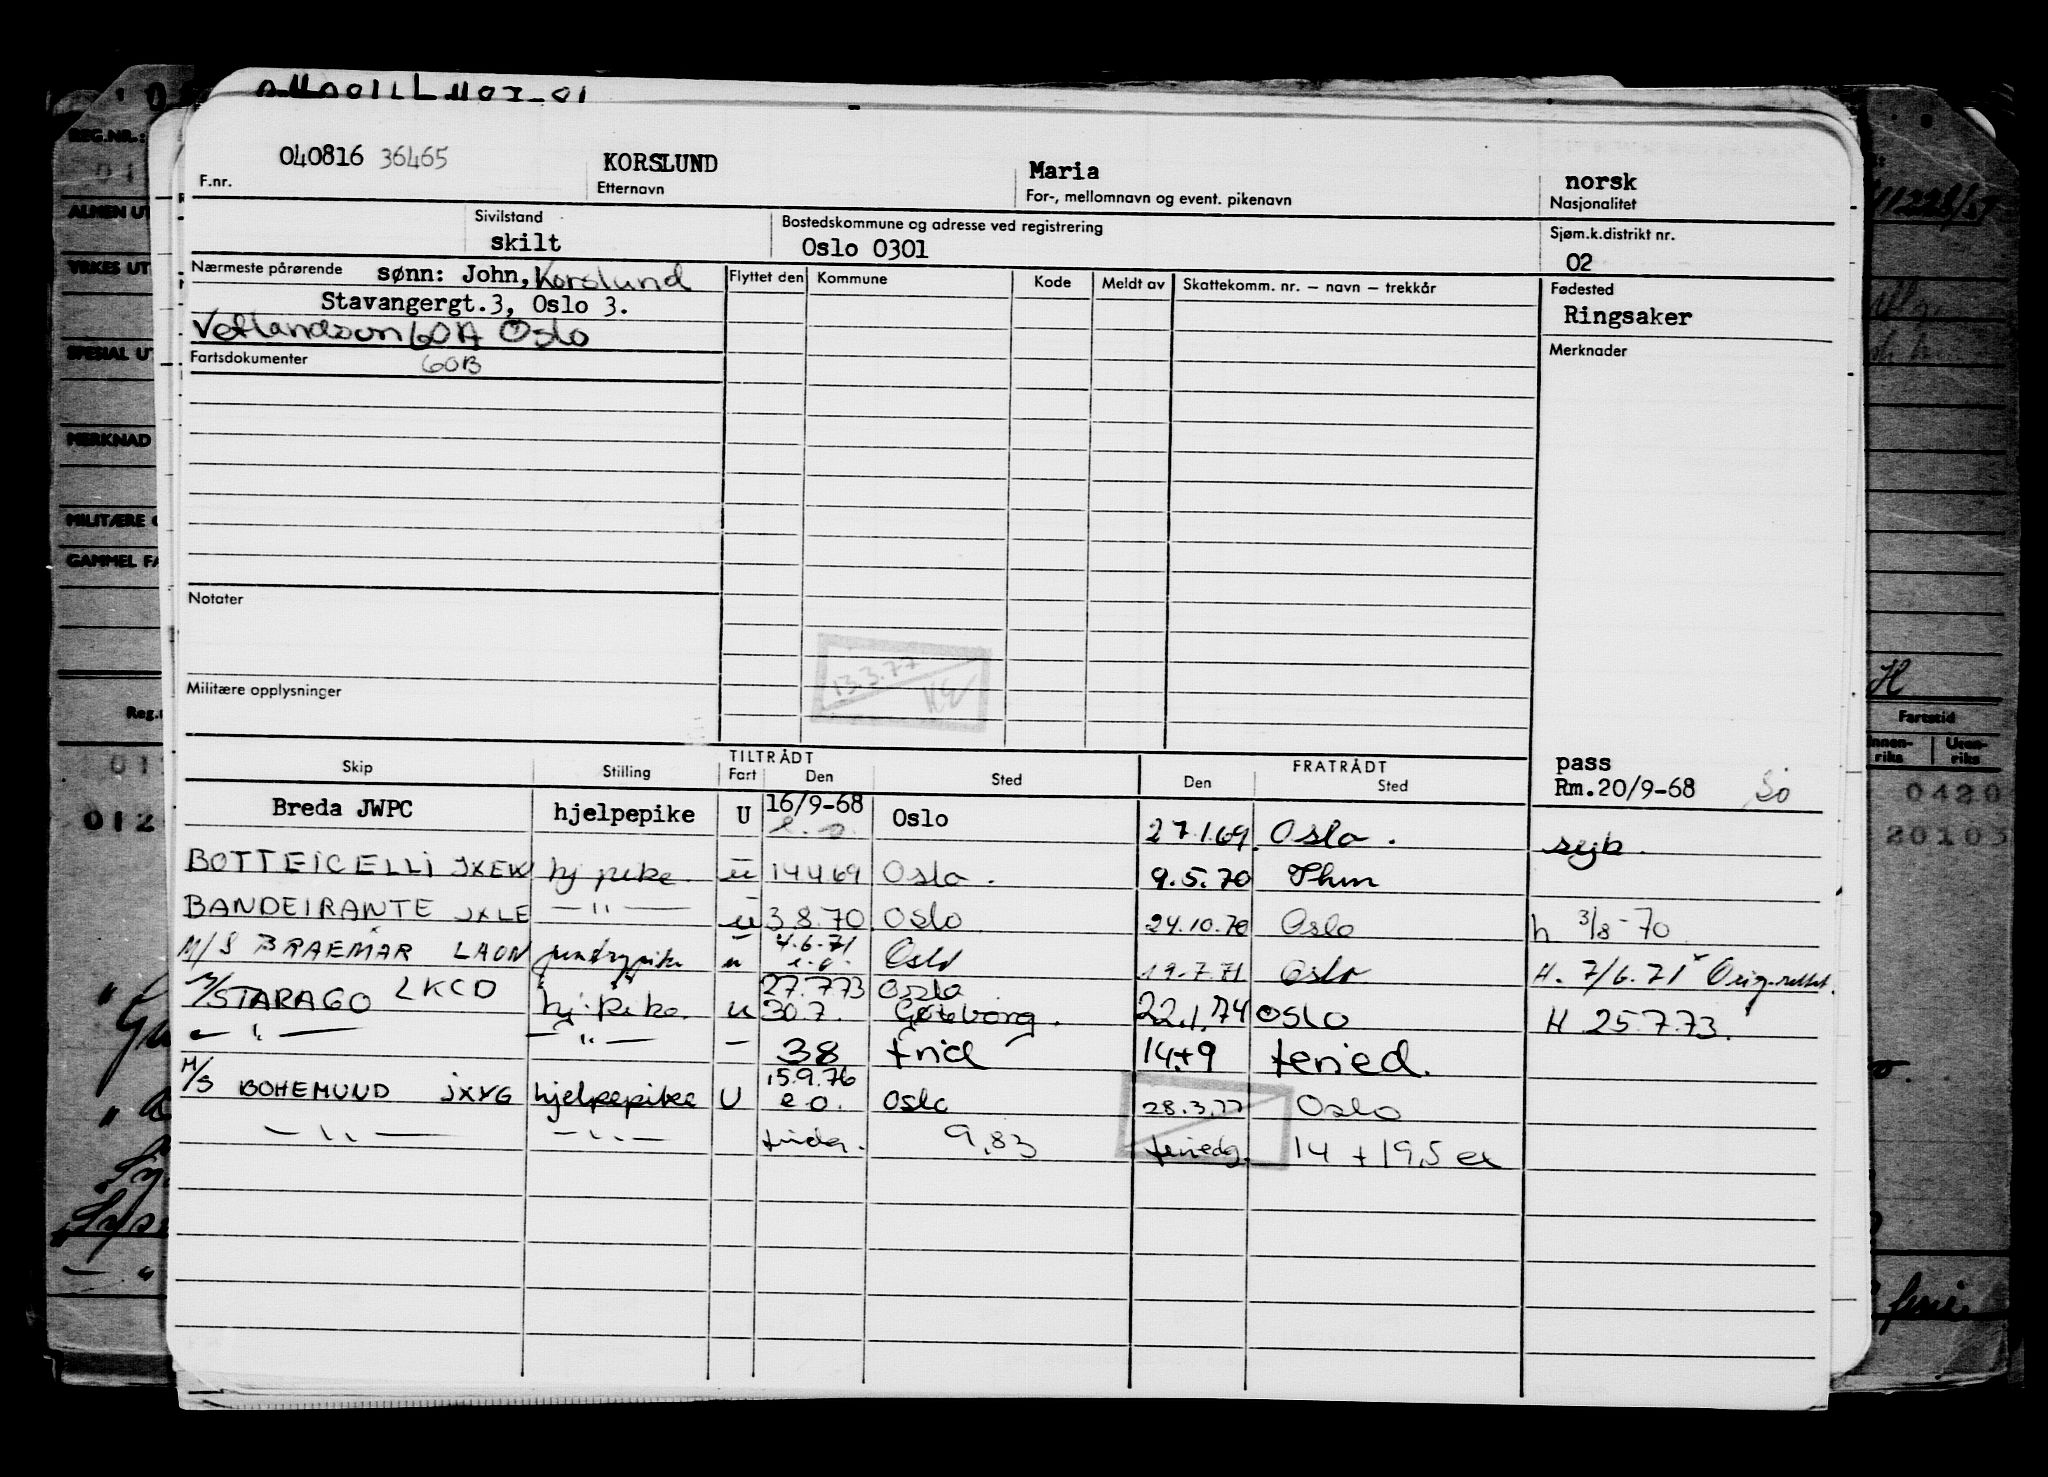 040816 36465 KORSLUND Maria norsk
F.nr. Etternavn For-, mellomnavn og event. pikenavn Nasjonalitet
Sivilstand Bostedskommune og adresse ved registrering Sjøm.k.distrikt nr.
skilt Oslo 0301 02
Nærmeste pårørende sønn: John, Korslund Flyttet den Kommune Kode Meldt av Skattekomm. nr. — navn — trekkår Fødested
Stavangergt.3, Oslo 3. Ringsaker
60A Oslo
Fartsdokumenter 60B Merknader
Notater
13.3.77
Militære opplysninger
TILTRÅDT FRATRÅDT pass
Skip Stilling Fart Den Sted Den Sted Rm.20/9-68
Breda JWPC hjelpepike U 16/9-68 Oslo 27.1.69. Oslo.
BOTTEICELLI JXEW hj pike u 14469 Oslo. 9.5.70 Thm
BANDEIRANTE JXLE —"— u 3.8.70. Oslo 24.10.70 Oslo h 3/8-70
M/S BRAEMAR LAON u 7.6.71 e.o. Oslo 19.7.71 Oslo H. 7/6.71
M/STARAGO LKCD hj.pike. u 27.773 Oslo
30.7. Gøteborg. 22.1.74 OSLO H 25.7.73.
—"— —"— — 38 frid 14+9 feried.
M/S BOHEMUND JXYG hjelpepike U 15.9.76 e.o. Oslo 28.3.77 Oslo
—"— —"— fridg. 9,83 feriedg. 14 + 19,5 ex
REG.NR.:
YRKES UT
SPESIAL UT
MERKNAD
MILITÆRE
Fartstid
Innen-riks Uten-riks
0420
20103
012
H